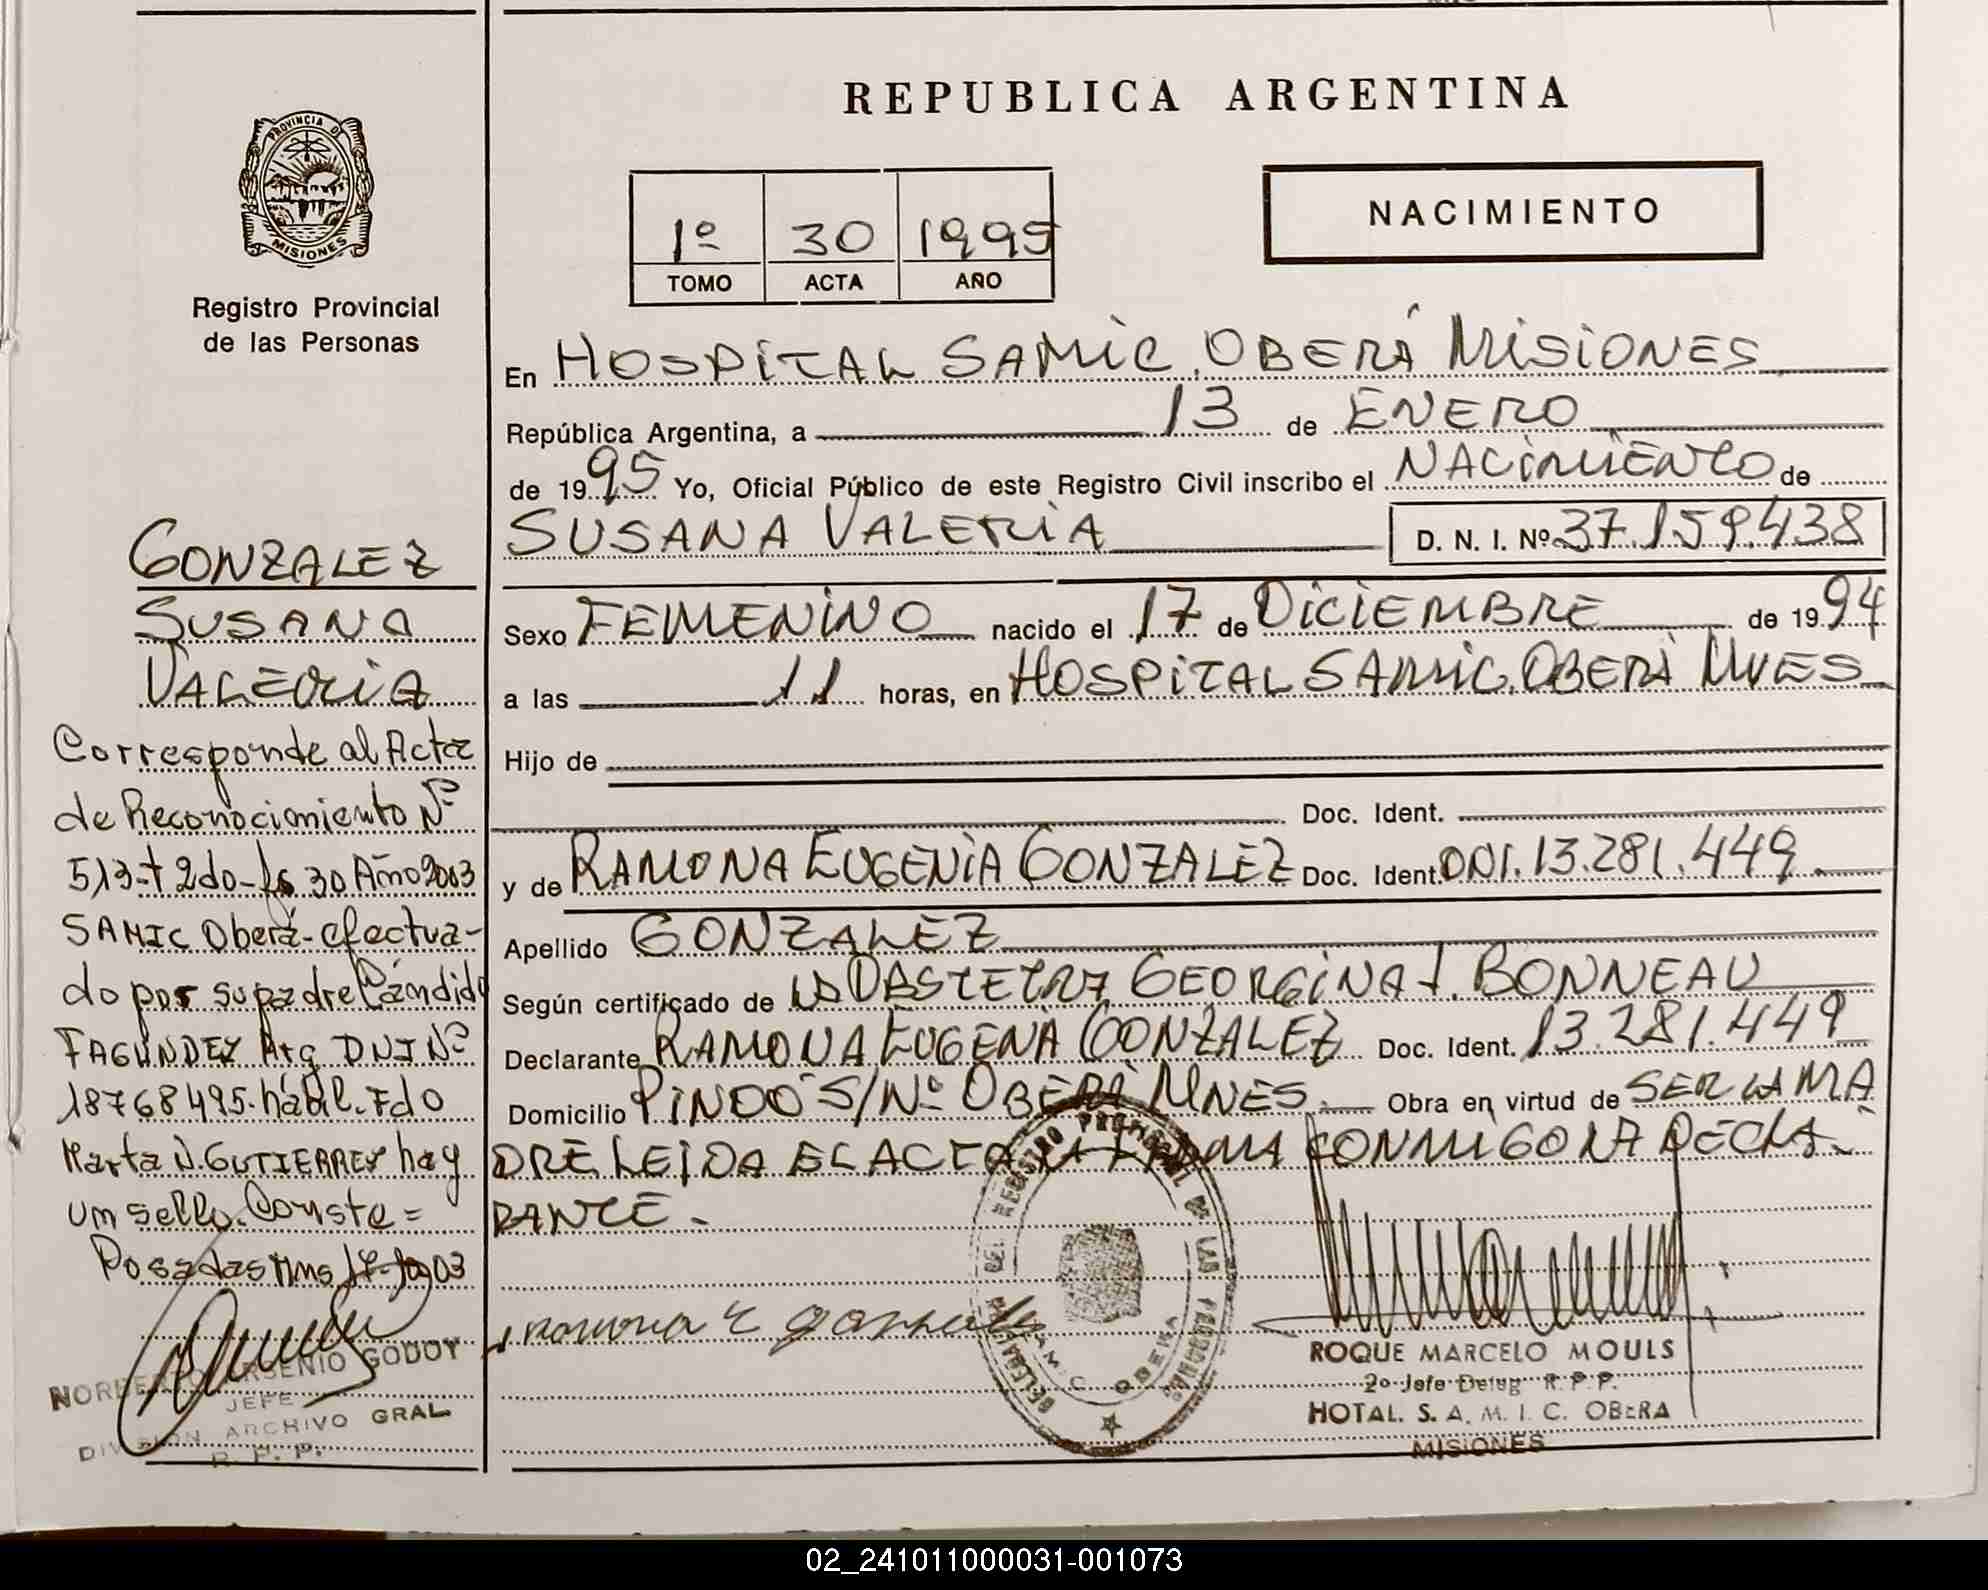 REPUBLICA ARGENTINA
PROVINCIA DE
MISIONES
Registro Provincial
de las Personas
1º 30 1995
TOMO ACTA AÑO
NACIMIENTO
GONZALEZ
SUSANA
VALERIA
Corresponde al Acta
de Reconocimiento Nº
513-t 2do-fs 30 Año 2003
SAMIC Oberá-efectua-
do por su padre Cándido
FAGUNDEZ Arg DNI Nº
18768495.hábil.Fdo
Marta N. GUTIERREZ hay
un sello. Conste =
Posadas Mns 03
NORBERTO ARSENIO GODOY
JEFE
DIVISION ARCHIVO GRAL
R. P. P.
En HOSPITAL SAMIC. OBERÁ MISIONES
República Argentina, a 13 de ENERO
de 1995 Yo, Oficial Público de este Registro Civil inscribo el NACIMIENTO de
SUSANA VALERIA D. N. I. Nº 37.159.438
Sexo FEMENINO nacido el 17 de DICIEMBRE de 1994
a las 11 horas, en HOSPITAL SAMIC. OBERÁ MNES
Hijo de
Doc. Ident.
y de RAMONA EUGENIA GONZALEZ Doc. Ident. DNI. 13.281.449
Apellido GONZALEZ
Según certificado de LA OBSTETRA GEORGINA I. BONNEAU
Declarante RAMONA EUGENA GONZALEZ Doc. Ident. 13.281.449
Domicilio PINDÓ S/Nº OBERÁ MNES. Obra en virtud de SER LA MA
DRE LEIDA EL ACTA LA FIRMA CONMIGO LA DECLA-
RANTE.-
ramona E gonzalez
DEL REGISTRO PROVINCIAL DE LAS PERSONAS
DELEGACION
S.A.M.I.C. OBERA
ROQUE MARCELO MOULS
2º Jefe Deleg R. P. P.
HOTAL. S. A. M. I. C. OBERA
MISIONES
02_241011000031-001073